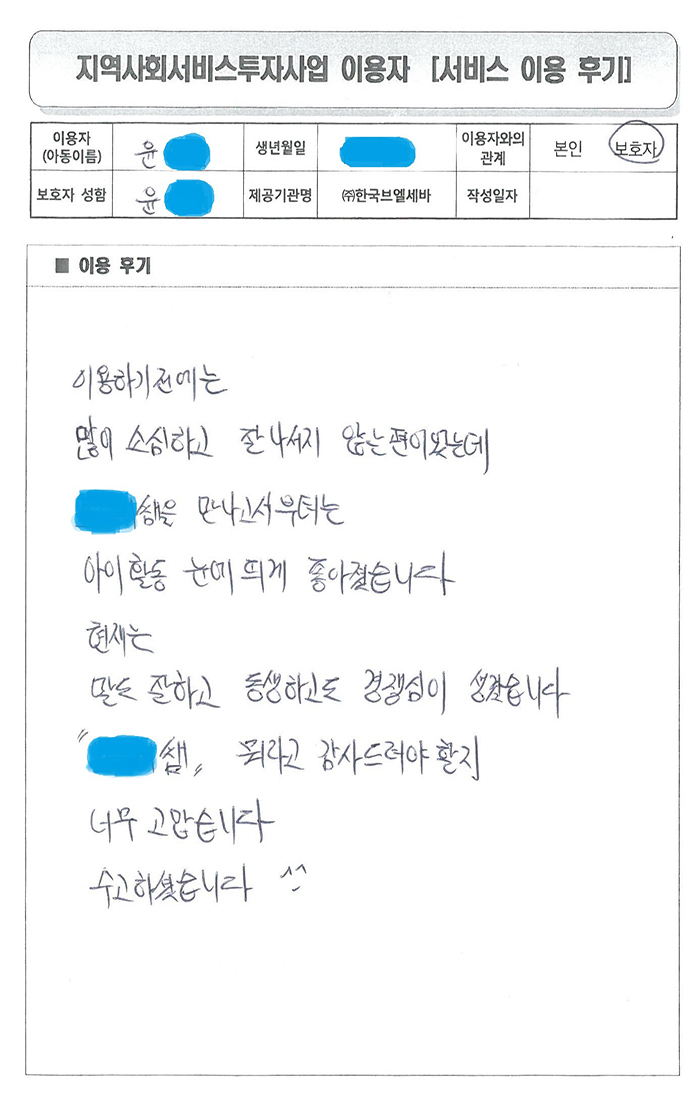 지역사회서비스투자사업 이용자 [서비스 이용 후기]
이용자 (아동이름) 윤 생년월일 이용자와의 관계 본인 보호자
보호자 성함 윤 제공기관명 ㈜한국브엘세바 작성일자
■ 이용 후기
이용하기전에는
많이 소심하고 잘 나서지 않는편이였는데
쌤을 만나고서부터는
아이활동 눈에 띄게 좋아졌습니다
현재는
말도 잘하고 동생하고도 경쟁심이 생겼습니다
"쌤" 뭐라고 감사드려야 할지
너무 고맙습니다
수고하셨습니다 ^^